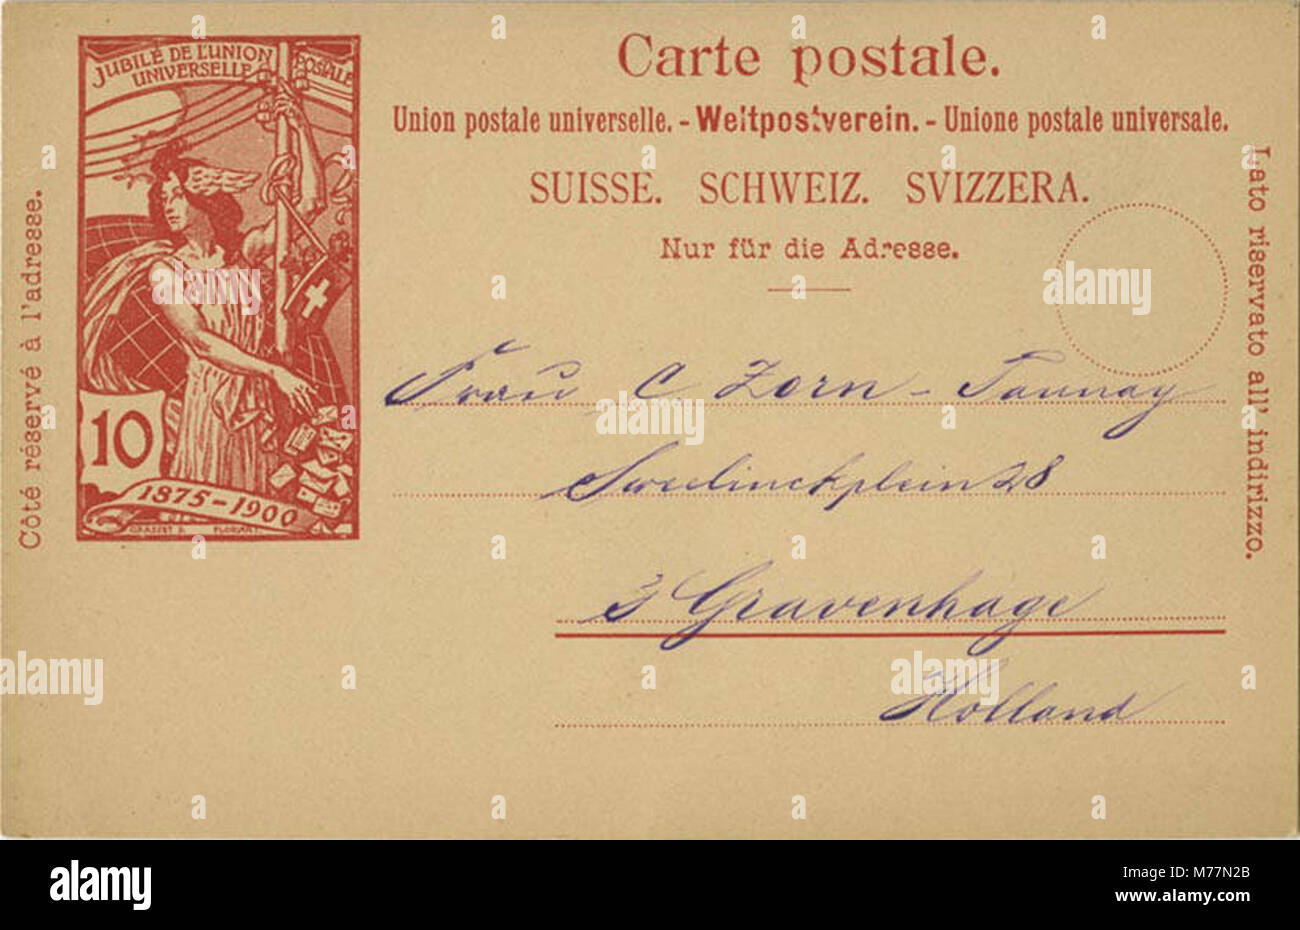 JUBILÉ DE L'UNION POSTALE
UNIVERSELLE
Carte postale.
Union postale universelle. - Weltpostverein. - Unione postale universale.
SUISSE. SCHWEIZ. SVIZZERA.
Nur für die Adresse.
Côté réservé à l'adresse.
Lato riservato all' indirizzo.
10
1875-1900
Frau C. Zorn - Taunay
Sweelinckplein 28
s Gravenhage
Holland
alamy
Image ID: M77N2B
www.alamy.com